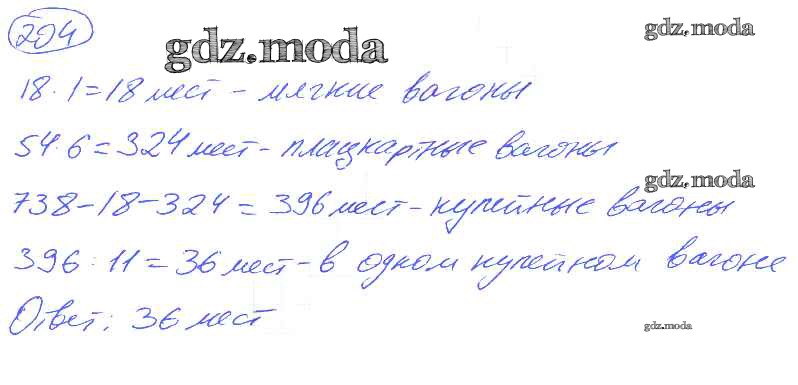 204
gdz.moda
gdz.moda
18·1=18 мест – мягкие вагоны
54·6=324 мест – плацкартные вагоны
gdz.moda
738–18–324=396 мест – купейные вагоны
396:11=36 мест – в одном купейном вагоне
Ответ: 36 мест
gdz.moda